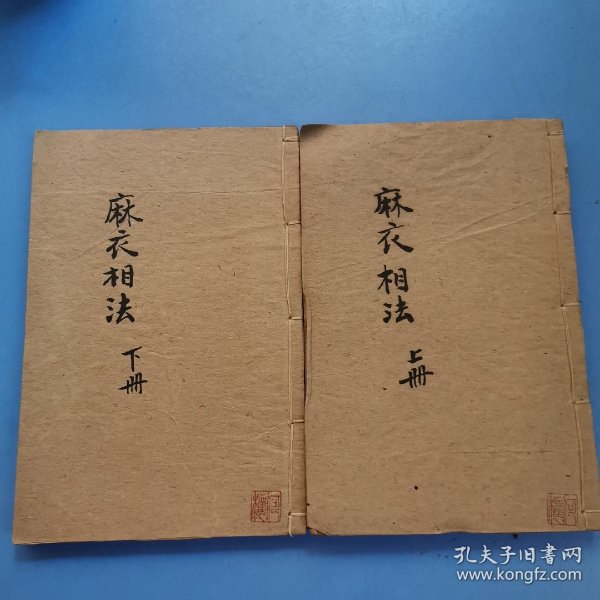 麻衣相法
下册
麻衣相法
上册
孔夫子旧书网
www.kongfz.com